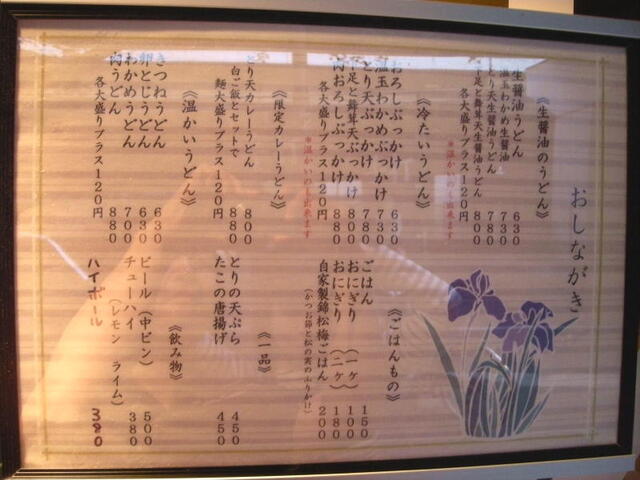 おしながき
《生醤油のうどん》
生醤油うどん 630
温玉わかめ生醤油 730
とり天生醤油うどん 780
下足と舞茸天生醤油うどん 800
各大盛りプラス120円
*温かいのも出来ます
《冷たいうどん》
おろしぶっかけ 630
温玉わかめぶっかけ 730
とり天ぶっかけ 780
下足と舞茸天ぶっかけ 800
肉おろしぶっかけ 880
各大盛りプラス120円
*温かいのも出来ます
《限定カレーうどん》
とり天カレーうどん 800
白ご飯とセットで 880
麺大盛りプラス120円
《温かいうどん》
きつねうどん 630
卵とじうどん 630
わかめうどん 700
肉うどん 880
各大盛りプラス120円
《ごはんもの》
ごはん 150
おにぎり (一ケ) 100
おにぎり (二ケ) 180
自家製錦松梅ごはん 200
(かつお節と松の実のふりかけ)
《一品》
とりの天ぷら 450
たこの唐揚げ 450
《飲み物》
ビール (中ビン) 500
チューハイ (レモン ライム) 380
ハイボール 380